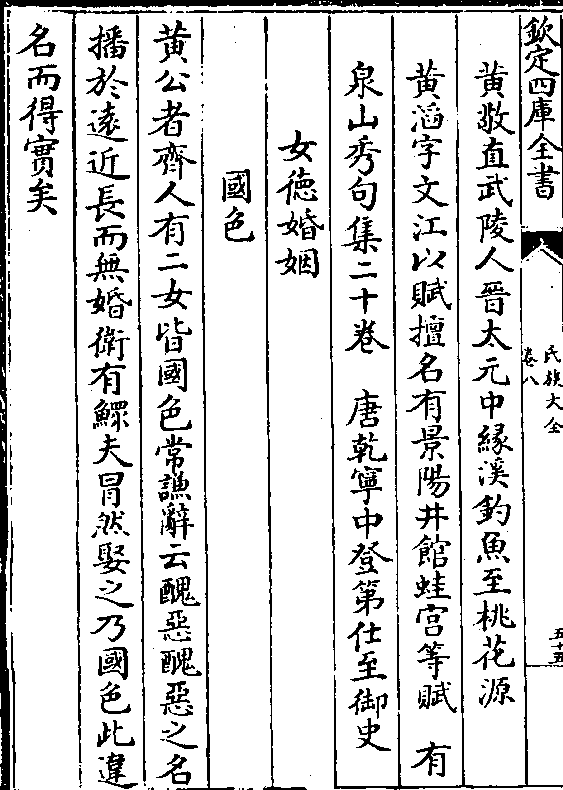 欽定四庫全書
氏族大全
卷八
五十五
黄敬直武陵人晉太元中緣溪釣魚至桃花源
黄滔字文江以賦擅名有景陽井館蛙宫等賦　有
泉山秀句集二十卷　唐乾寧中登第仕至御史
女德婚姻
國色
黄公者齊人有二女皆國色常謙辭云醜惡醜惡之名
播於遠近長而無婚衛有鰥夫冒然娶之乃國色此違
名而得實矣